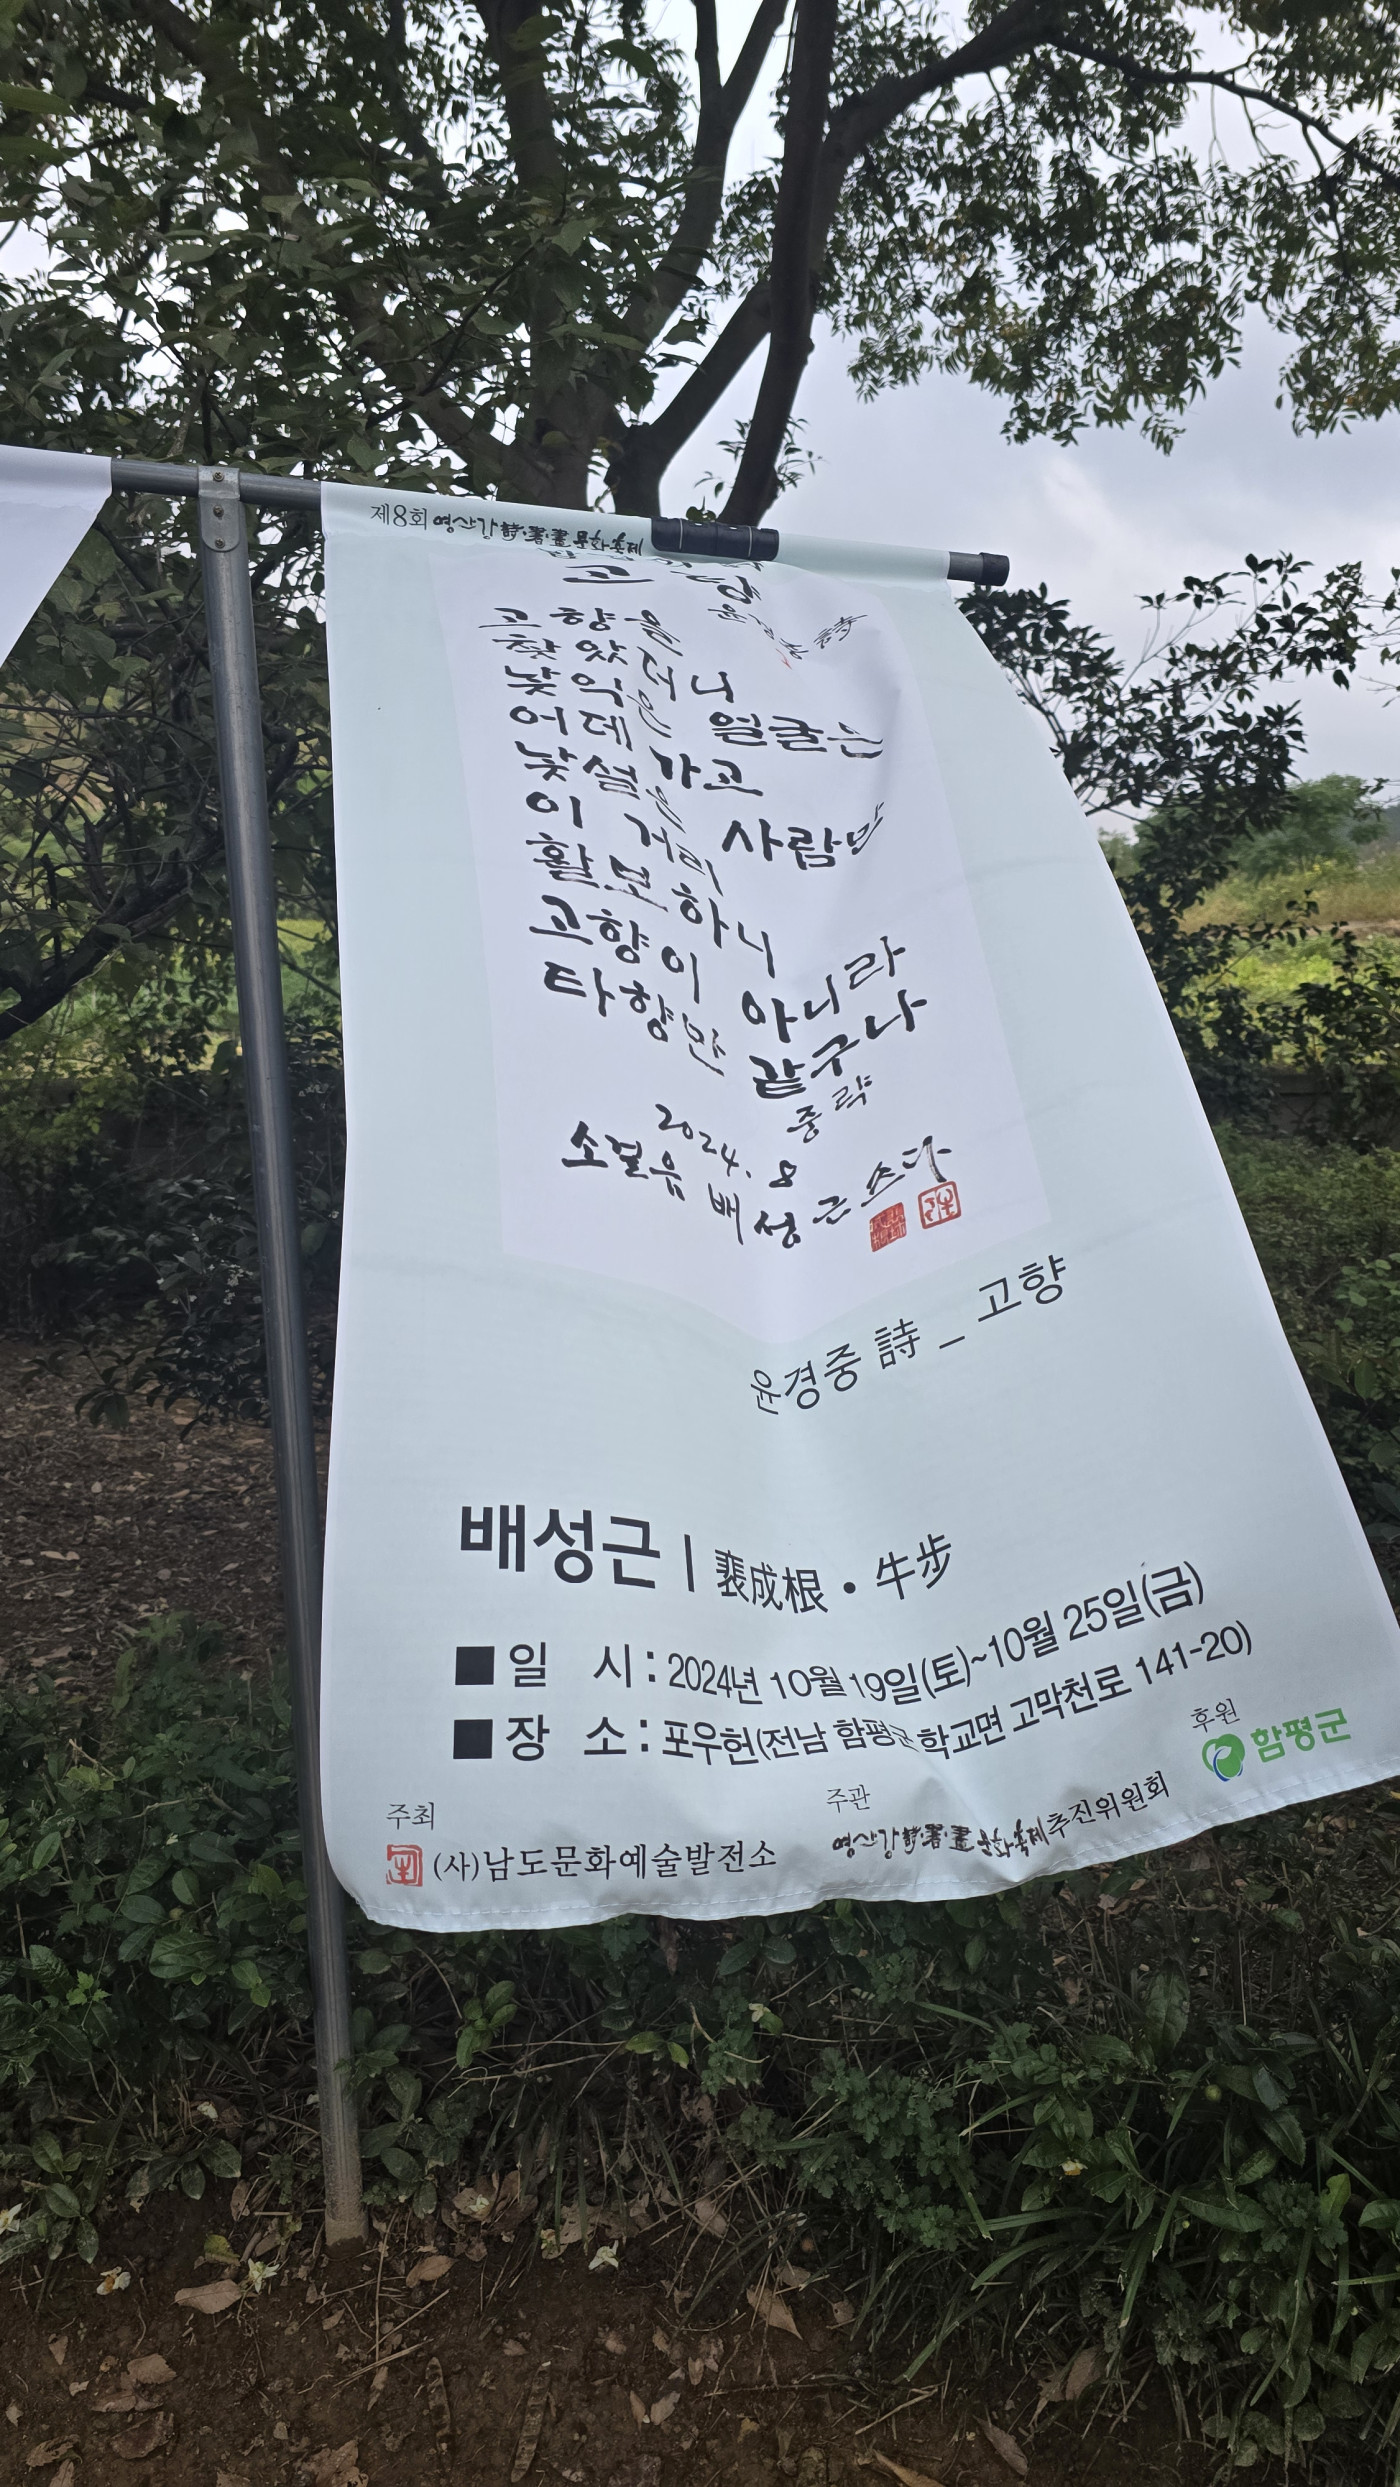 제8회 영산강 詩·書·畫 문화축제
고향
윤경중 詩
고향을
찾았더니
낯익은 얼굴은
어데 가고
낯설은 사람만
이 거리
활보하니
고향이 아니라
타향만 같구나
중략
2024. 8
배성근 쓰다
윤경중 詩 _ 고향
배성근 | 裵成根 • 牛步
■ 일 시 : 2024년 10월 19일(토)~10월 25일(금)
■ 장 소 : 포우헌(전남 함평군 학교면 고막천로 141-20)
주최
(사)남도문화예술발전소
주관
영산강 詩·書·畫 문화축제추진위원회
후원
함평군